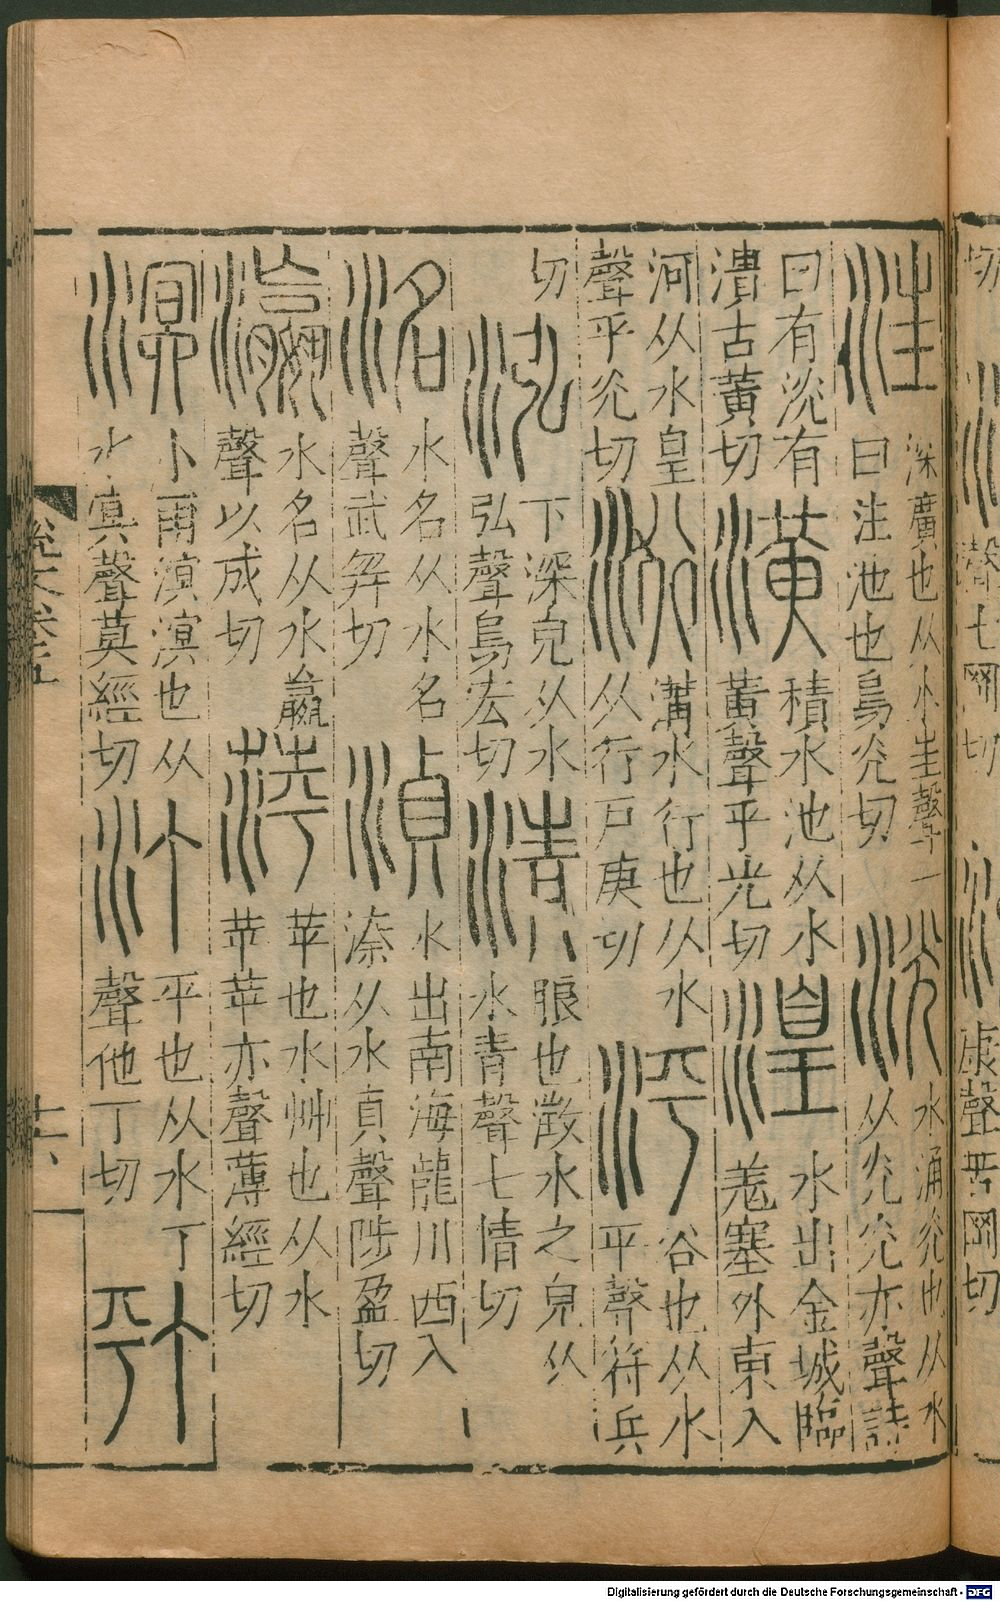 汪 深廣也从水㞷聲一
曰汪池也烏光切
洸 水涌光也从水
从光光亦聲詩
曰有洸有
潰古黃切
潢 積水池从水
黃聲乎光切
湟 水出金城臨
羌塞外東入
河从水皇
聲乎光切
洐 溝水行也从水
从行戶庚切
泙 谷也从水
平聲符兵
切
泓 下深皃从水
弘聲烏宏切
清 朖也澂水之皃从
水青聲七情切
洺 水名从水名
聲武幷切
湞 水出南海龍川西入
溱从水貞聲陟盈切
瀛 水名从水嬴
聲以成切
蓱 苹也水艸也从水
苹苹亦聲薄經切
溟 小雨溟溟也从
水冥聲莫經切
汀 平也从水丁
聲他丁切
平
說文卷五
十一
切
聲七岡切
康聲苦岡切
Digitalisierung gefördert durch die Deutsche Forschungsgemeinschaft - DFG